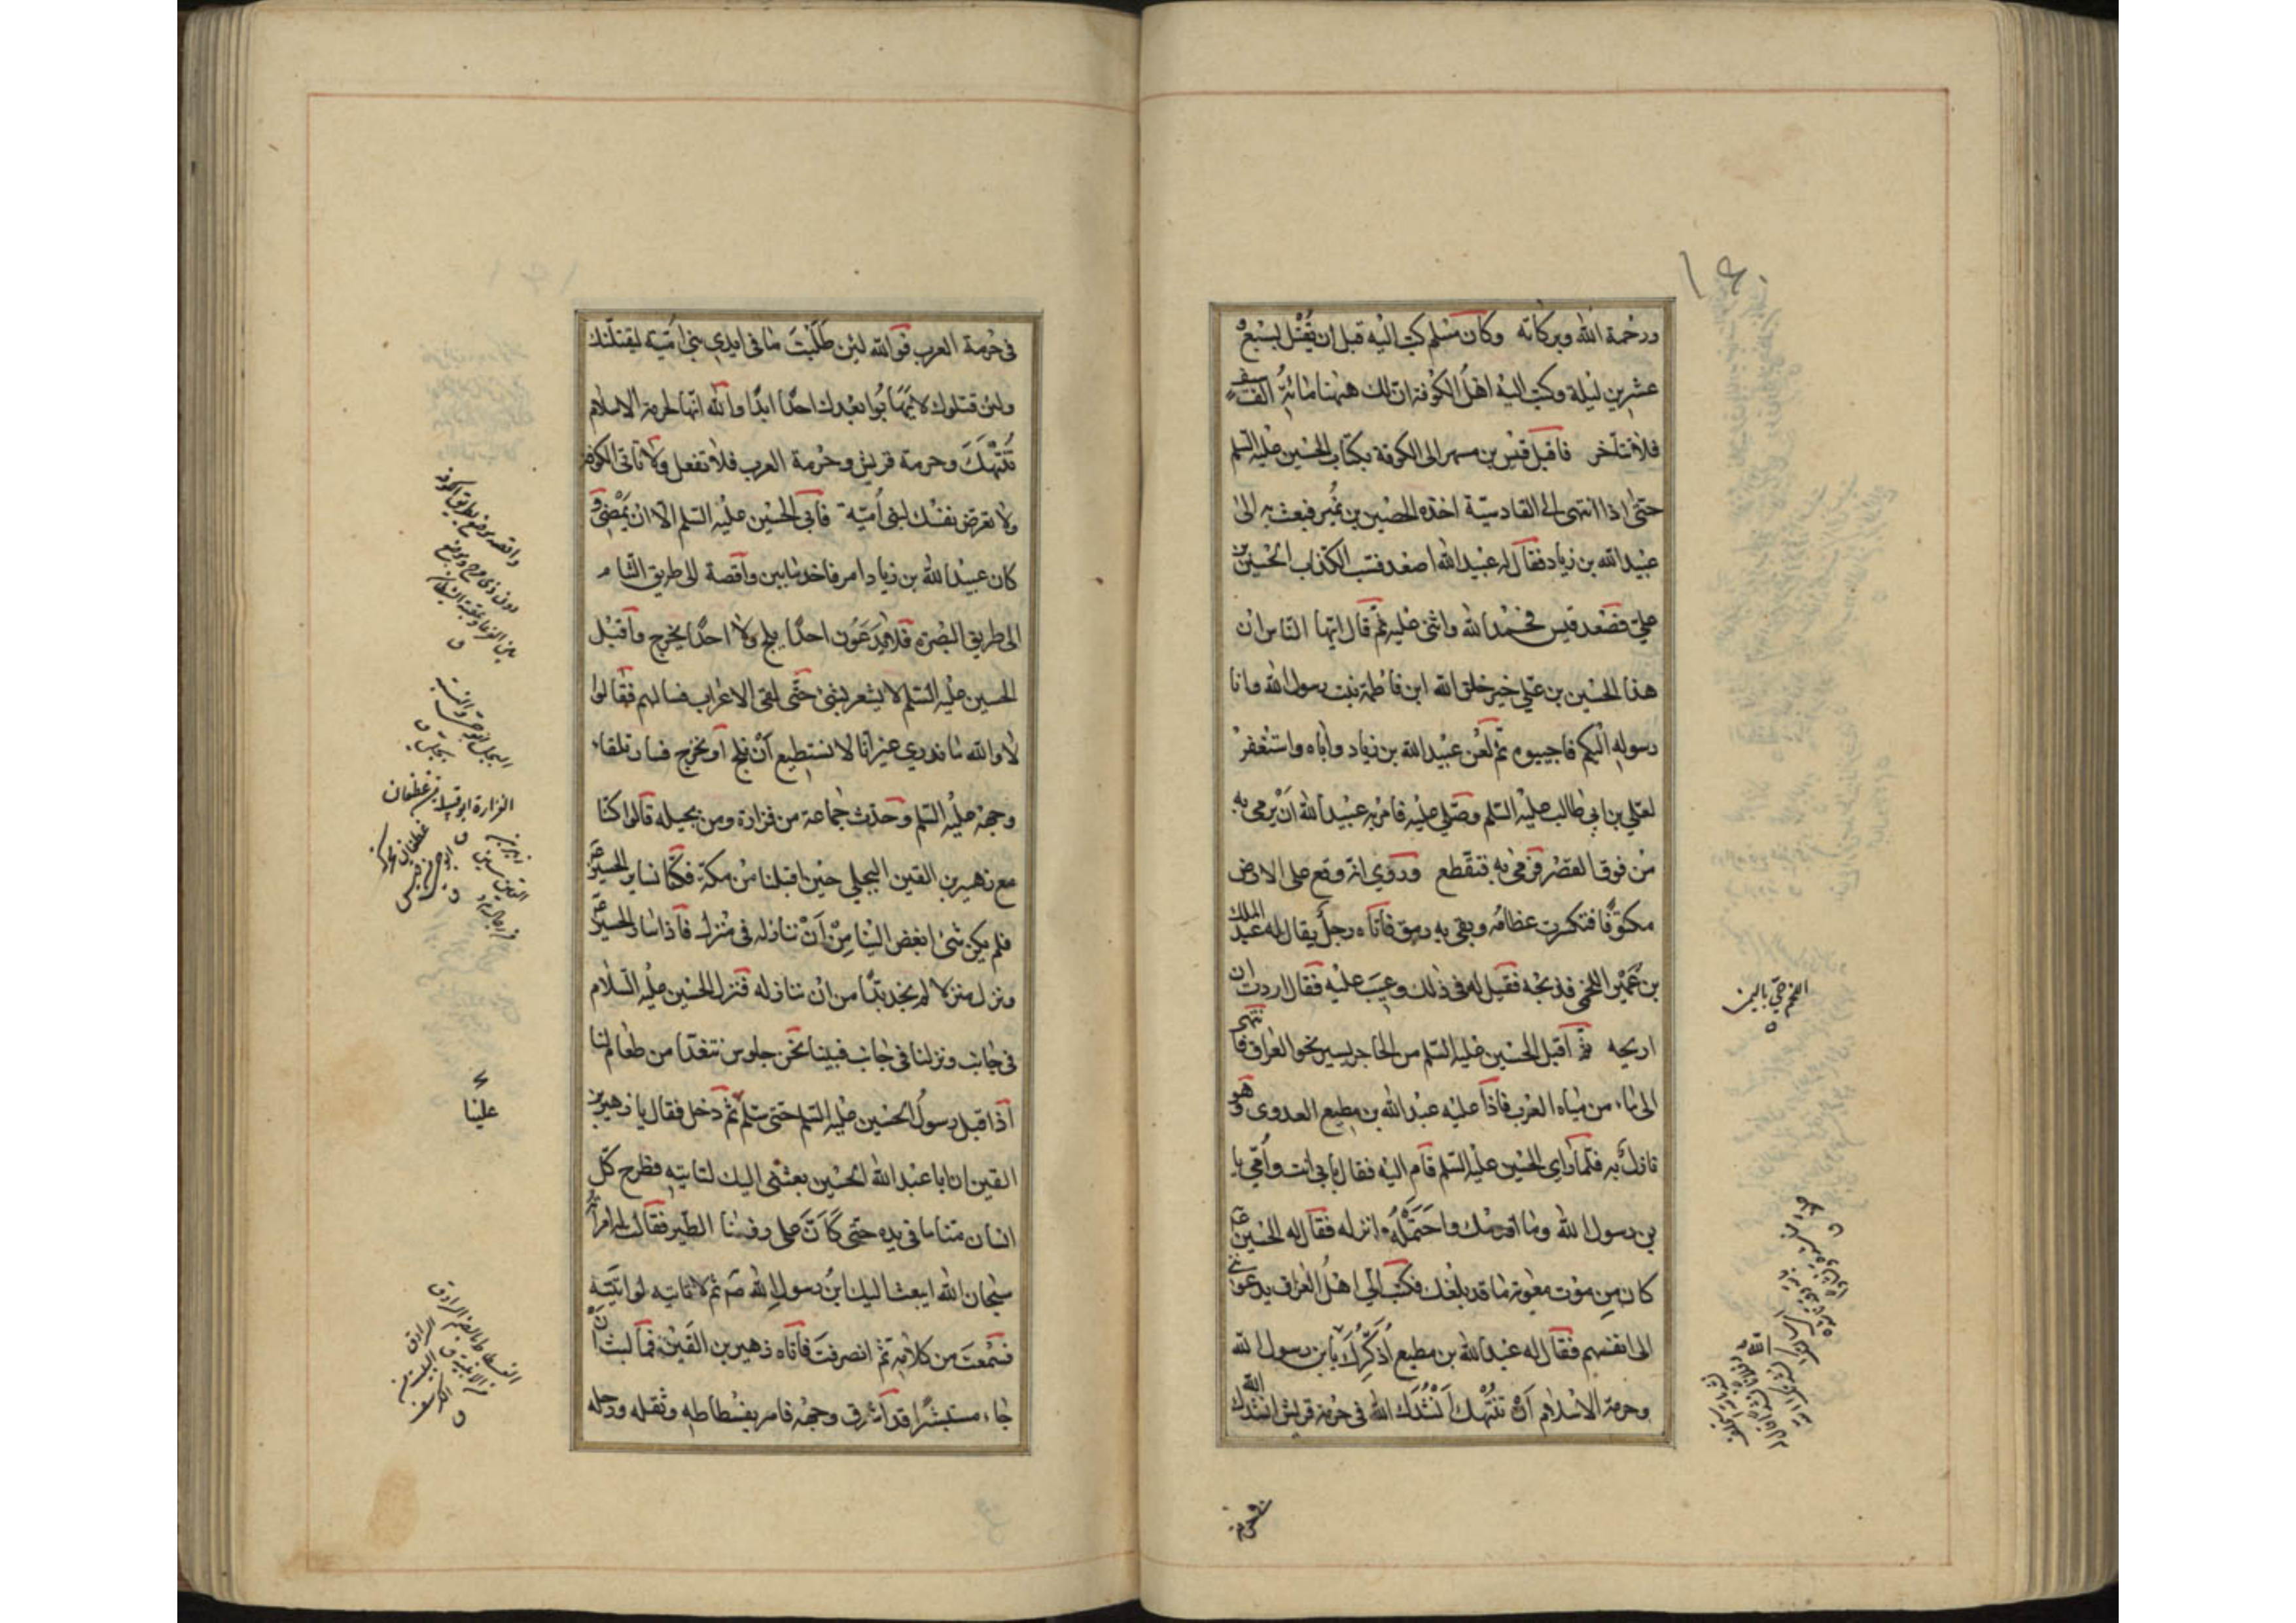 ورحمة الله وبركاته وكان مسلم كتب اليه قبل ان يقتل بسبع و
عشرين ليلة وكتب اليه اهل الكوفة ان لك ههنا مائة الف سيف
فلا تتأخر فاقبل قيس بن مسهر الى الكوفة بكتاب الحسين عليه السلم
حتى اذا انتهى الى القادسية اخذه الحصين بن نمير فبعث به الى
عبيد الله بن زياد فقال له عبيد الله اصعد فسب الكذاب الحسين بن
علي فصعد قيس فحمد الله واثنى عليه ثم قال ايها الناس ان
هذا الحسين بن علي خير خلق الله ابن فاطمة بنت رسول الله وانا
رسوله اليكم فاجيبوه ثم لعن عبيد الله بن زياد واباه واستغفر
لعلي بن ابي طالب عليه السلم وصلى عليه فامر به عبيد الله ان يرمى به
من فوق القصر فرمى به فتقطع وروي انه وقع على الارض
مكتوفا فتكسرت عظامه وبقي به رمق فاتاه رجل يقال له عبد الملك
بن عمير اللخمي فذبحه فقيل له في ذلك وعيب عليه فقال اردت ان
اريحه ثم اقبل الحسين عليه السلم من الحاجر يسير نحو العراق فانتهى
الى ماء من مياه العرب فاذا عليه عبد الله بن مطيع العدوي وهو
نازل به فلما راى الحسين عليه السلم قام اليه فقال بابي انت وامي يا
بن رسول الله وما اقدمك واحتمله انزله فقال له الحسين ع
كان من موت معوية ما قد بلغك فكتب الي اهل العراق يدعونني
الى انفسهم فقال له عبد الله بن مطيع اذكرك يا بن رسول الله
وحرمة الاسلام ان تنتهك انشدك الله في حرمة قريش انشدك الله
اللخم حي باليمن
في حرمة العرب فوالله لئن طلبت ما في ايدي بني امية ليقتلنك
ولئن قتلوك لا يهابوا بعدك احدا ابدا والله انها لحرمة الاسلام
تنتهك وحرمة قريش وحرمة العرب فلا تفعل ولا تاتي الكوفة
ولا تعرض نفسك لبني امية فابى الحسين عليه السلم الا ان يمضي و
كان عبيد الله بن زياد امر فاخذ ما بين واقصة الى طريق الشام
الى طريق البصرة فلا يدعون احدا يلج ولا احدا يخرج واقبل
الحسين عليه السلم لا يشعر بشئ حتى لقي الاعراب فسالهم فقالوا
لا والله ما ندري غير انا لا نستطيع ان نلج او نخرج فسار تلقاء
وجهه عليه السلم وحدث جماعة من فزارة ومن بجيله قالوا كنا
مع زهير بن القين البجلي حين اقبلنا من مكة فكنا نساير الحسين ع
فلم يكن شئ ابغض الينا من ان ننازله في منزل فاذا سار الحسين ع
ونزل منزلا لم يجد بدا من ان ننازله فنزل الحسين عليه السلام
في جانب ونزلنا في جانب فبينا نحن جلوس نتغدا من طعام لنا
اذ اقبل رسول الحسين عليه السلم حتى سلم ثم دخل فقال يا زهير بن
القين ان ابا عبد الله الحسين بعثني اليك لتاتيه فطرح كل
انسان منا ما في يده حتى كان على رؤسنا الطير فقالت له امراته
سبحان الله ايبعث اليك ابن رسول الله ص ثم لا تاتيه لو اتيته
فسمعت من كلامه ثم انصرفت فاتاه زهير بن القين فما لبث ان
جاء مستبشرا قد اشرق وجهه فامر بفسطاطه وثقله ورحله
الفزارة ابو قبيلة من غطفان
علينا